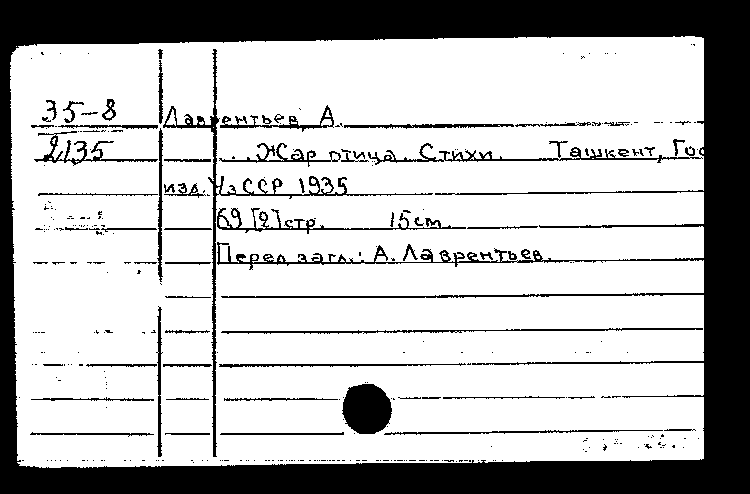 35-8 Лаврентьев, А.
2135 ...Жар птица. Стихи. Ташкент, Гос
изд. УзССР, 1935
69,[2]стр. 15см.
Перед загл.: А. Лаврентьев.